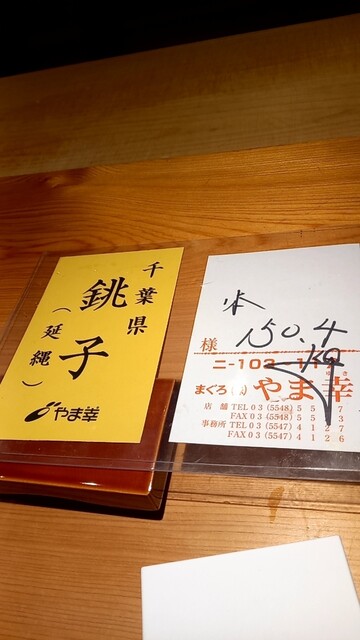 千葉県
銚子
（延縄）
やま幸
150.4
kg
様
ニ-102
まぐろ(有) やま幸
店舗 TEL 03 (5548) 5 5 7
FAX 03 (5548) 5 5 3
事務所 TEL 03 (5547) 4 1 2 7
FAX 03 (5547) 4 1 2 6